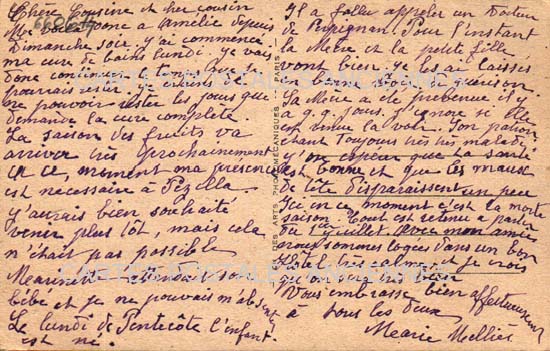 Chère Cousine et cher cousin
Me voici donc à Amélie depuis
Dimanche soir. J'ai commencé
ma cure de bains lundi. Je vais
donc continuer tant que je
pourrais rester. Je crains de
ne pouvoir rester les jours que
demande la cure complète.
La saison des fruits va
arriver très prochainement
et ce moment ma présence
est necessaire à Pezilla
J'aurais bien souhaité
venir plus tôt, mais cela
n'était pas possible
attendait son
bébé et je ne pouvais m'absenter
Le lundi de Pentecôte l'enfant
est né.
Il a fallu appeler un Docteur
de Perpignan. Pour l'instant
la Mère et la petite fille
vont bien. Je les ai laissés
en bonne voie de guérison.
Sa Mère a été prévenue il y
a q.q. jours. J'ignore si elle
est venue la voir. Son patron
étant toujours très très malade
J'ose espérer que ta santé
est bonne et que les maux
de tête disparaissent un peu
Ici en ce moment c'est la morte
saison. Tout est retenu à partir
du 1er juillet. Avec mon amie
nous sommes logées dans un bon
Hôtel très calme et je crois
qu'on sera très bien
Vous embrasse bien affectueusement
à tous les deux
Marie Melliès
CARTES POSTALES ANCIENNES
CARTES POSTALES ANCIENNES